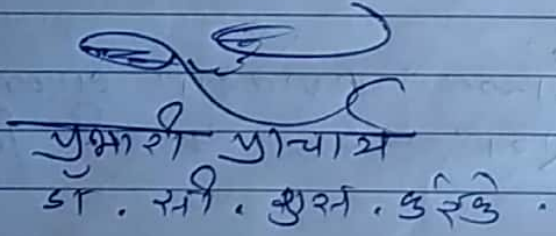 प्रभारी प्राचार्य
डॉ. सी. एस.